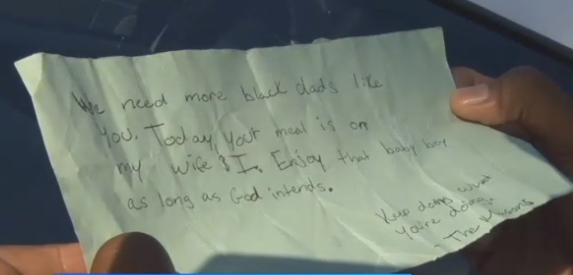 We need more black dads like
you. Today, your meal is on
my wife & I. Enjoy that baby boy
as long as God intends.
Keep doing what
you're doing.
The